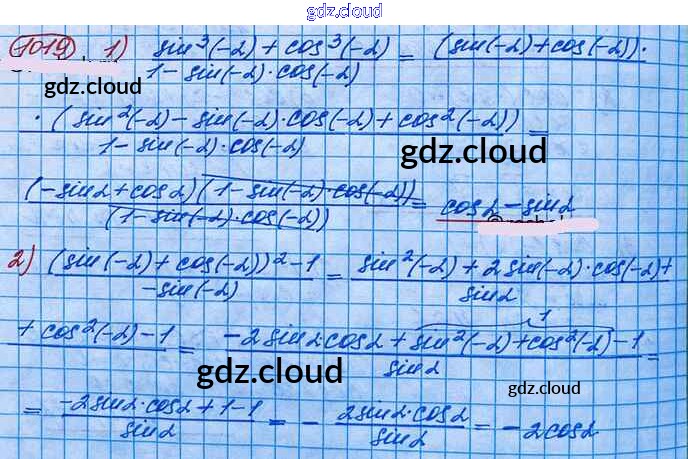 gdz.cloud
1019 1) (sin³(-α) + cos³(-α)) / (1 - sin(-α)·cos(-α)) = (sin(-α) + cos(-α))·
gdz.cloud
·(sin²(-α) - sin(-α)·cos(-α) + cos²(-α)) / (1 - sin(-α)·cos(-α)) =
gdz.cloud
(-sinα + cosα)(1 - sin(-α)·cos(-α)) / (1 - sin(-α)·cos(-α)) = cosα - sinα
2) ((sin(-α) + cos(-α))² - 1) / (-sin(-α)) = (sin²(-α) + 2sin(-α)·cos(-α) +) / sinα
1
+ cos²(-α) - 1 = (-2sinα·cosα + sin²(-α) + cos²(-α) - 1) / sinα =
gdz.cloud
gdz.cloud
= (-2sinα·cosα + 1 - 1) / sinα = - (2sinα·cosα) / sinα = -2cosα